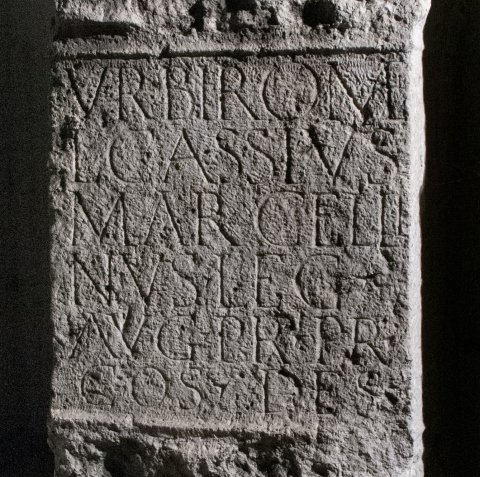 VRBI ROM
L CASSIVS
MARCELLI
NVS LEG
AVG PR PR
COS DES